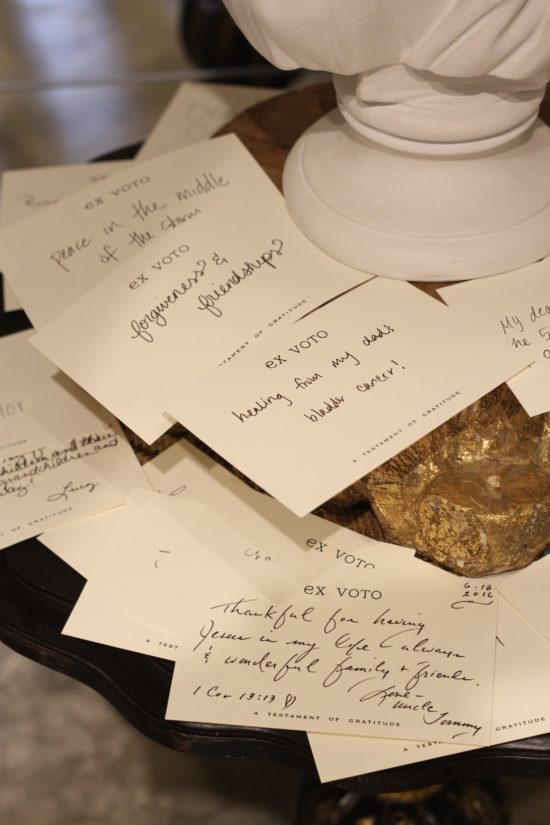 ex VOTO
peace in the middle
of the storm
ex VOTO
forgiveness &
friendships
TAMENT OF GRATITUDE
ex VOTO
healing from my dad's
bladder cancer!
A TESTAMENT OF GRATITUDE
My dea
he 5
children and their
grandchildren and
Lucy
OF GRATITUDE
ex VOTO
A TEST
ex VOTO
6.18
2016
Thankful for having
Jesus in my life always
& wonderful family & friends.
Love-
uncle Tommy
1 Cor 13:13
A TESTAMENT OF GRATITUDE
GRATITUDE
A TESTA